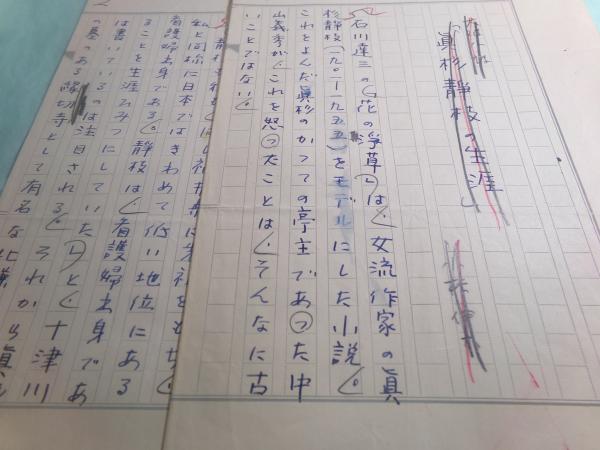 「眞杉静枝の生涯」
石川達三の「花の浄草」は、女流作家の眞
杉静枝(一九〇一-一九五五)をモデルにした小説。
これをよんだ眞杉のかつての亭主であった中
山義秀が、これを怒ったことは、そんなに古
いことではない。
2
に先祖をもち、
私と同様に日本ではきわめて低い地位にある
看護婦出身である。静枝は、看護婦出身であ
ることを生涯ひみつにしていた」と、十津川
は書いているのは注目される。それから眞
の墓のある縁切寺として有名な北鎌